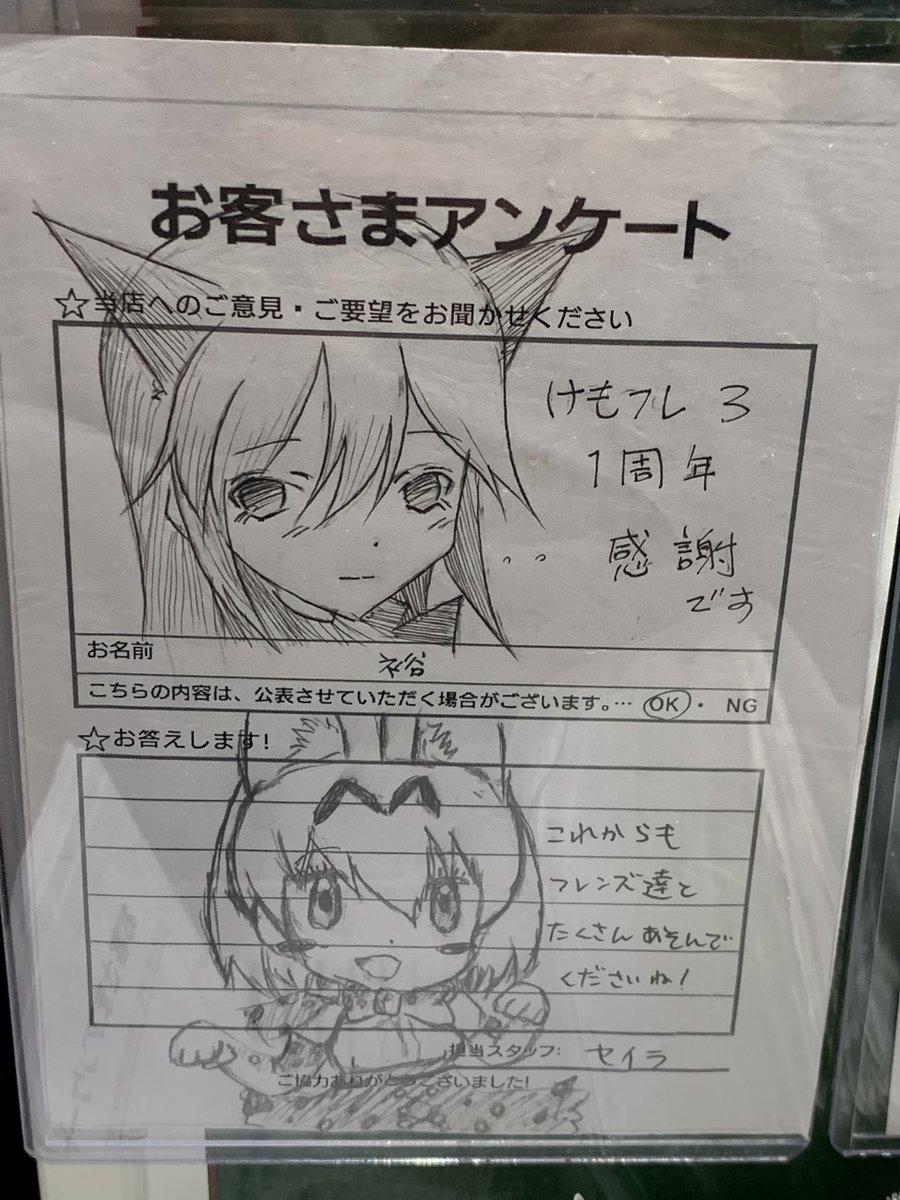 お客さまアンケート
☆当店へのご意見・ご要望をお聞かせください
けもフレ3
1周年
感謝
です
お名前
裕
こちらの内容は、公表させていただく場合がございます。… OK ・ NG
☆お答えします!
これからも
フレンズ達と
たくさんあそんで
くださいね!
担当スタッフ: セイラ
ご協力ありがとうございました!